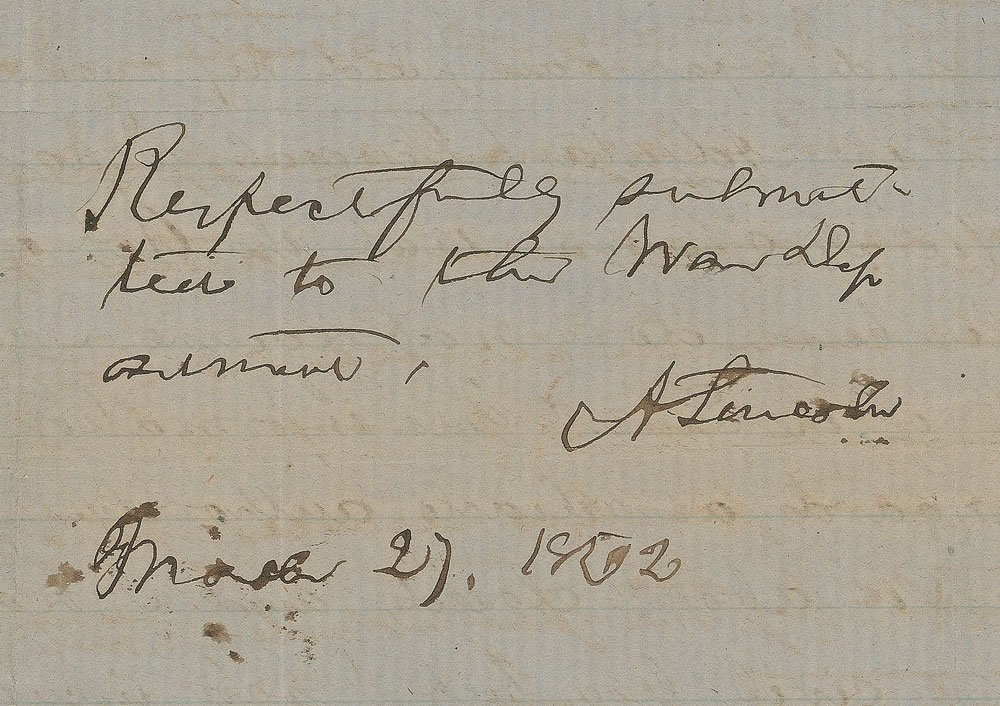 Respectfully submit-
ted to the War Dep
artment.
A Lincoln
March 27, 1862